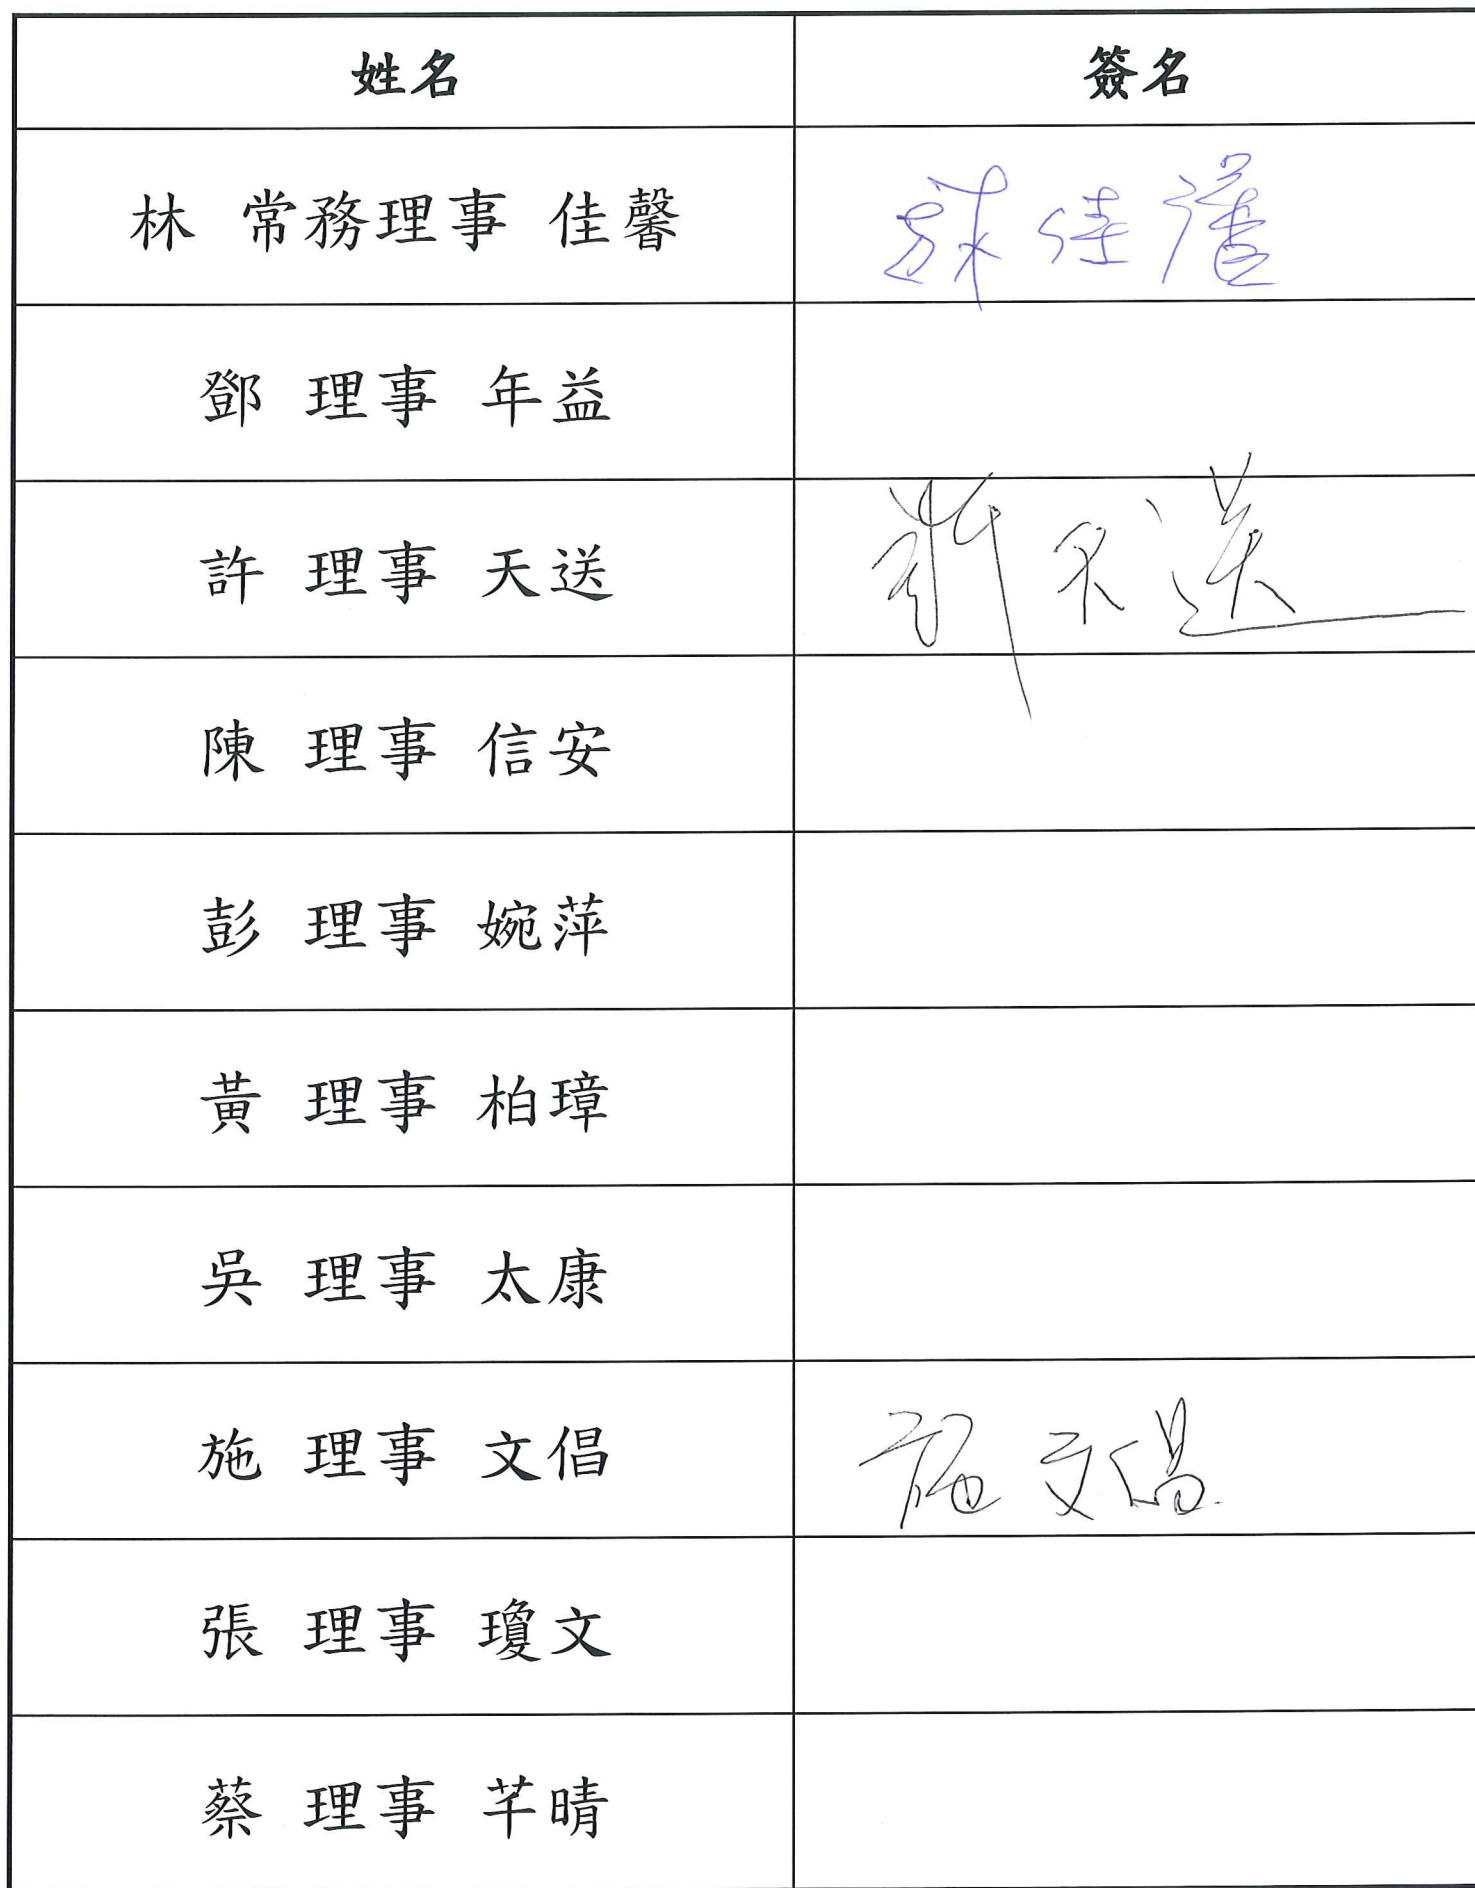 姓名 簽名
林 常務理事 佳馨 林佳馨
鄧 理事 年益
許 理事 天送 許天送
陳 理事 信安
彭 理事 婉萍
黃 理事 柏璋
吳 理事 太康
施 理事 文倡 施文倡
張 理事 瓊文
蔡 理事 芊晴